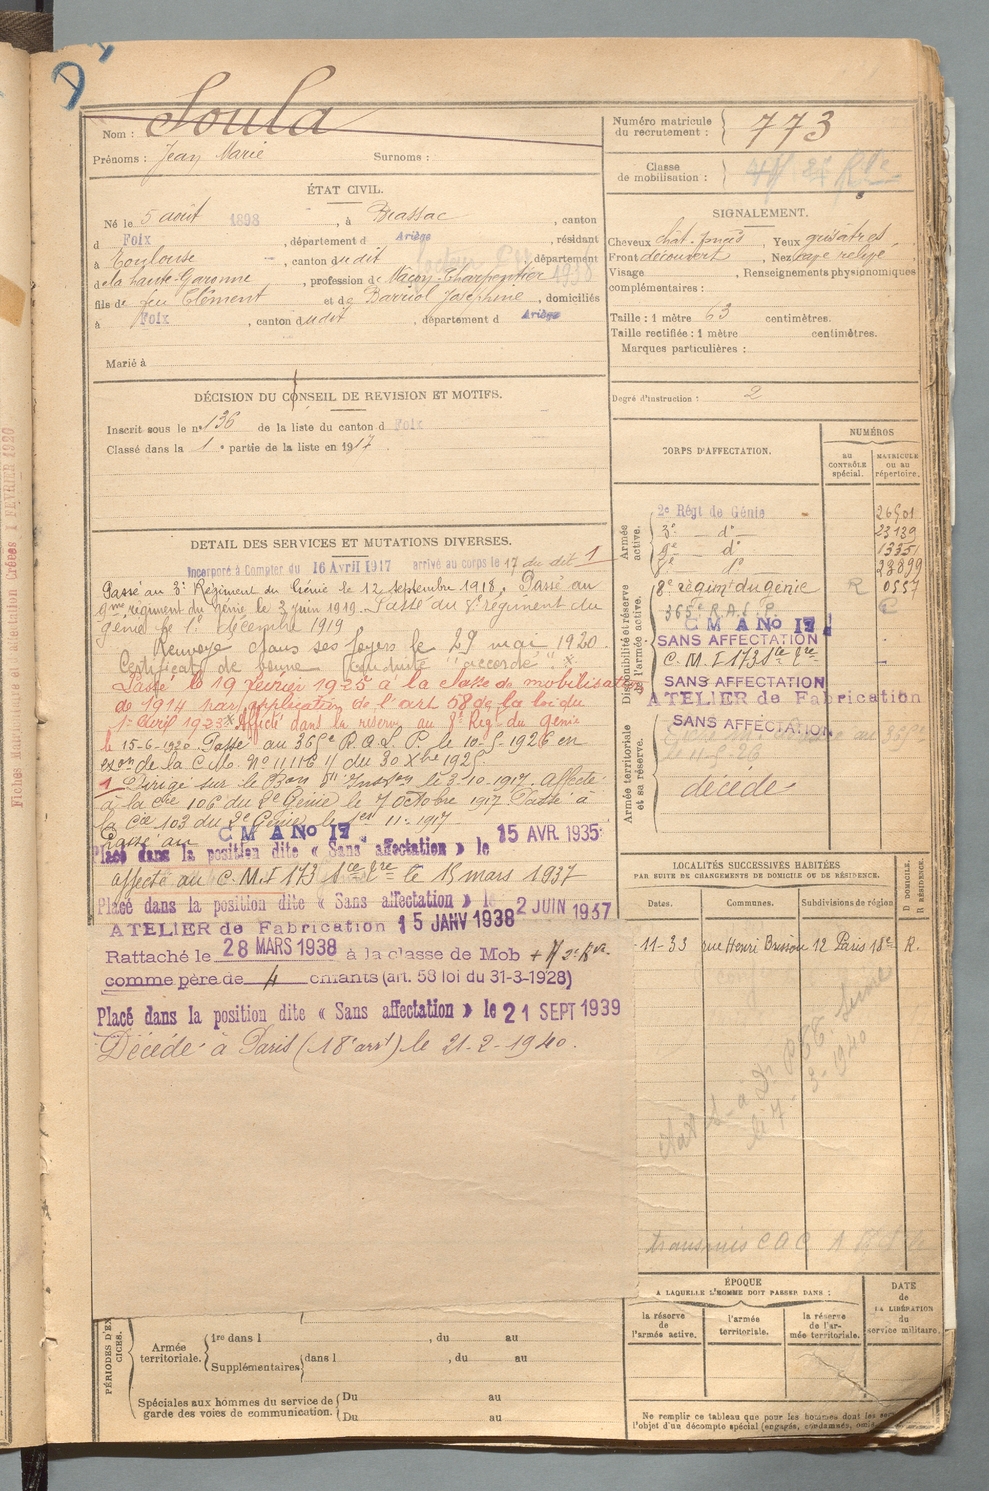 Nom : Soula
Prénoms : Jean Marie Surnoms :
Numéro matricule
du recrutement : 773
Classe
de mobilisation :
ÉTAT CIVIL.
Né le 5 août 1898, à Brassac, canton
d Foix, département d Ariège, résidant
à Toulouse, canton dudit, département
de la haute-Garonne, profession de Maçon-Charpentier
fils de feu Clément et de Barriol Josephine, domiciliés
à Foix, canton dudit, département d Ariège
Marié à
SIGNALEMENT.
Cheveux chât. foncés, Yeux grisâtres,
Front découvert, Nez relevé
Visage , Renseignements physionomiques
complémentaires :
Taille : 1 mètre 63 centimètres.
Taille rectifiée : 1 mètre centimètres.
Marques particulières :
Degré d'instruction : 2
DÉCISION DU CONSEIL DE REVISION ET MOTIFS.
Inscrit sous le n° 136 de la liste du canton d Foix
Classé dans la 1e partie de la liste en 1917
DETAIL DES SERVICES ET MUTATIONS DIVERSES.
Incorporé à Compter du 16 Avril 1917 arrivé au corps le 17 du dit 1
Passé au 3e Régiment du Génie le 12 septembre 1918, Passé au
9me régiment du génie, le 3 juin 1919. Passé du 8e régiment du
génie le 1er décembre 1919
Renvoyé dans ses foyers le 29 mai 1920.
Certificat de bonne conduite "accordé". x
Passé le 19 février 1925 à la classe de mobilisation
de 1914 par application de l'art 58 de la loi du
1er Avril 1923 x Affecté dans la réserve au 8e Rég. du génie
le 15-6-1920. Passé au 365e R.A.L.P. le 10-5-1926 en
exon de la C.M. du 30 Xbre 1925
1 Dirigé sur le Bon d'Insson le 3-10-1917. Affecté
à la Cie 106 du 2e Génie le 7 octobre 1917 Passé à
la Cie 103 du 2e Génie le 1er 11-1917
Passé au C M A No 17
Placé dans la position dite « Sans affectation » le 15 AVR 1935
affecté au C.M.I 173 le 15 mars 1937
Placé dans la position dite « Sans affectation » le 2 JUIN 1937
ATELIER de Fabrication 15 JANV 1938
Rattaché le 28 MARS 1938 à la classe de Mob
comme père de 4 enfants (art. 58 loi du 31-3-1928)
Placé dans la position dite « Sans affectation » le 21 SEPT 1939
Décédé à Paris (18e arrt) le 21-2-1940.
CORPS D'AFFECTATION.
NUMÉROS
AU CONTRÔLE spécial.
MATRICULE ou au répertoire.
Armée active.
2e Régt de Génie 26501
3e do 23139
9e do 13351
8e do 23899
Disponibilité et réserve de l'armée active.
8e régimt du génie R 0557
365e R.A.L.P.
C M A No 17
SANS AFFECTATION
C.M.I 173
SANS AFFECTATION
ATELIER de Fabrication
SANS AFFECTATION
Armée territoriale et sa réserve.
décédé
LOCALITÉS SUCCESSIVES HABITÉES
PAR SUITE DE CHANGEMENTS DE DOMICILE OU DE RÉSIDENCE.
Dates. Communes. Subdivisions de région D DOMICILE. R RÉSIDENCE.
-11-33 rue Henri Brisson 12 Paris 18e R.
transmis C A C
ÉPOQUE
A LAQUELLE L'HOMME DOIT PASSER DANS :
la réserve de l'armée active.
l'armée territoriale.
la réserve de l'armée territoriale.
DATE de LA LIBÉRATION du service militaire.
Armée territoriale. 1re dans l , du au
Supplémentaires dans l , du au
Spéciales aux hommes du service de Du au
garde des voies de communication. Du au
Ne remplir ce tableau que pour les hommes dont les
l'objet d'un décompte spécial (engagés, condamnés,
Fiches Matricule et d'affectation Créées 1 FÉVRIER 1920